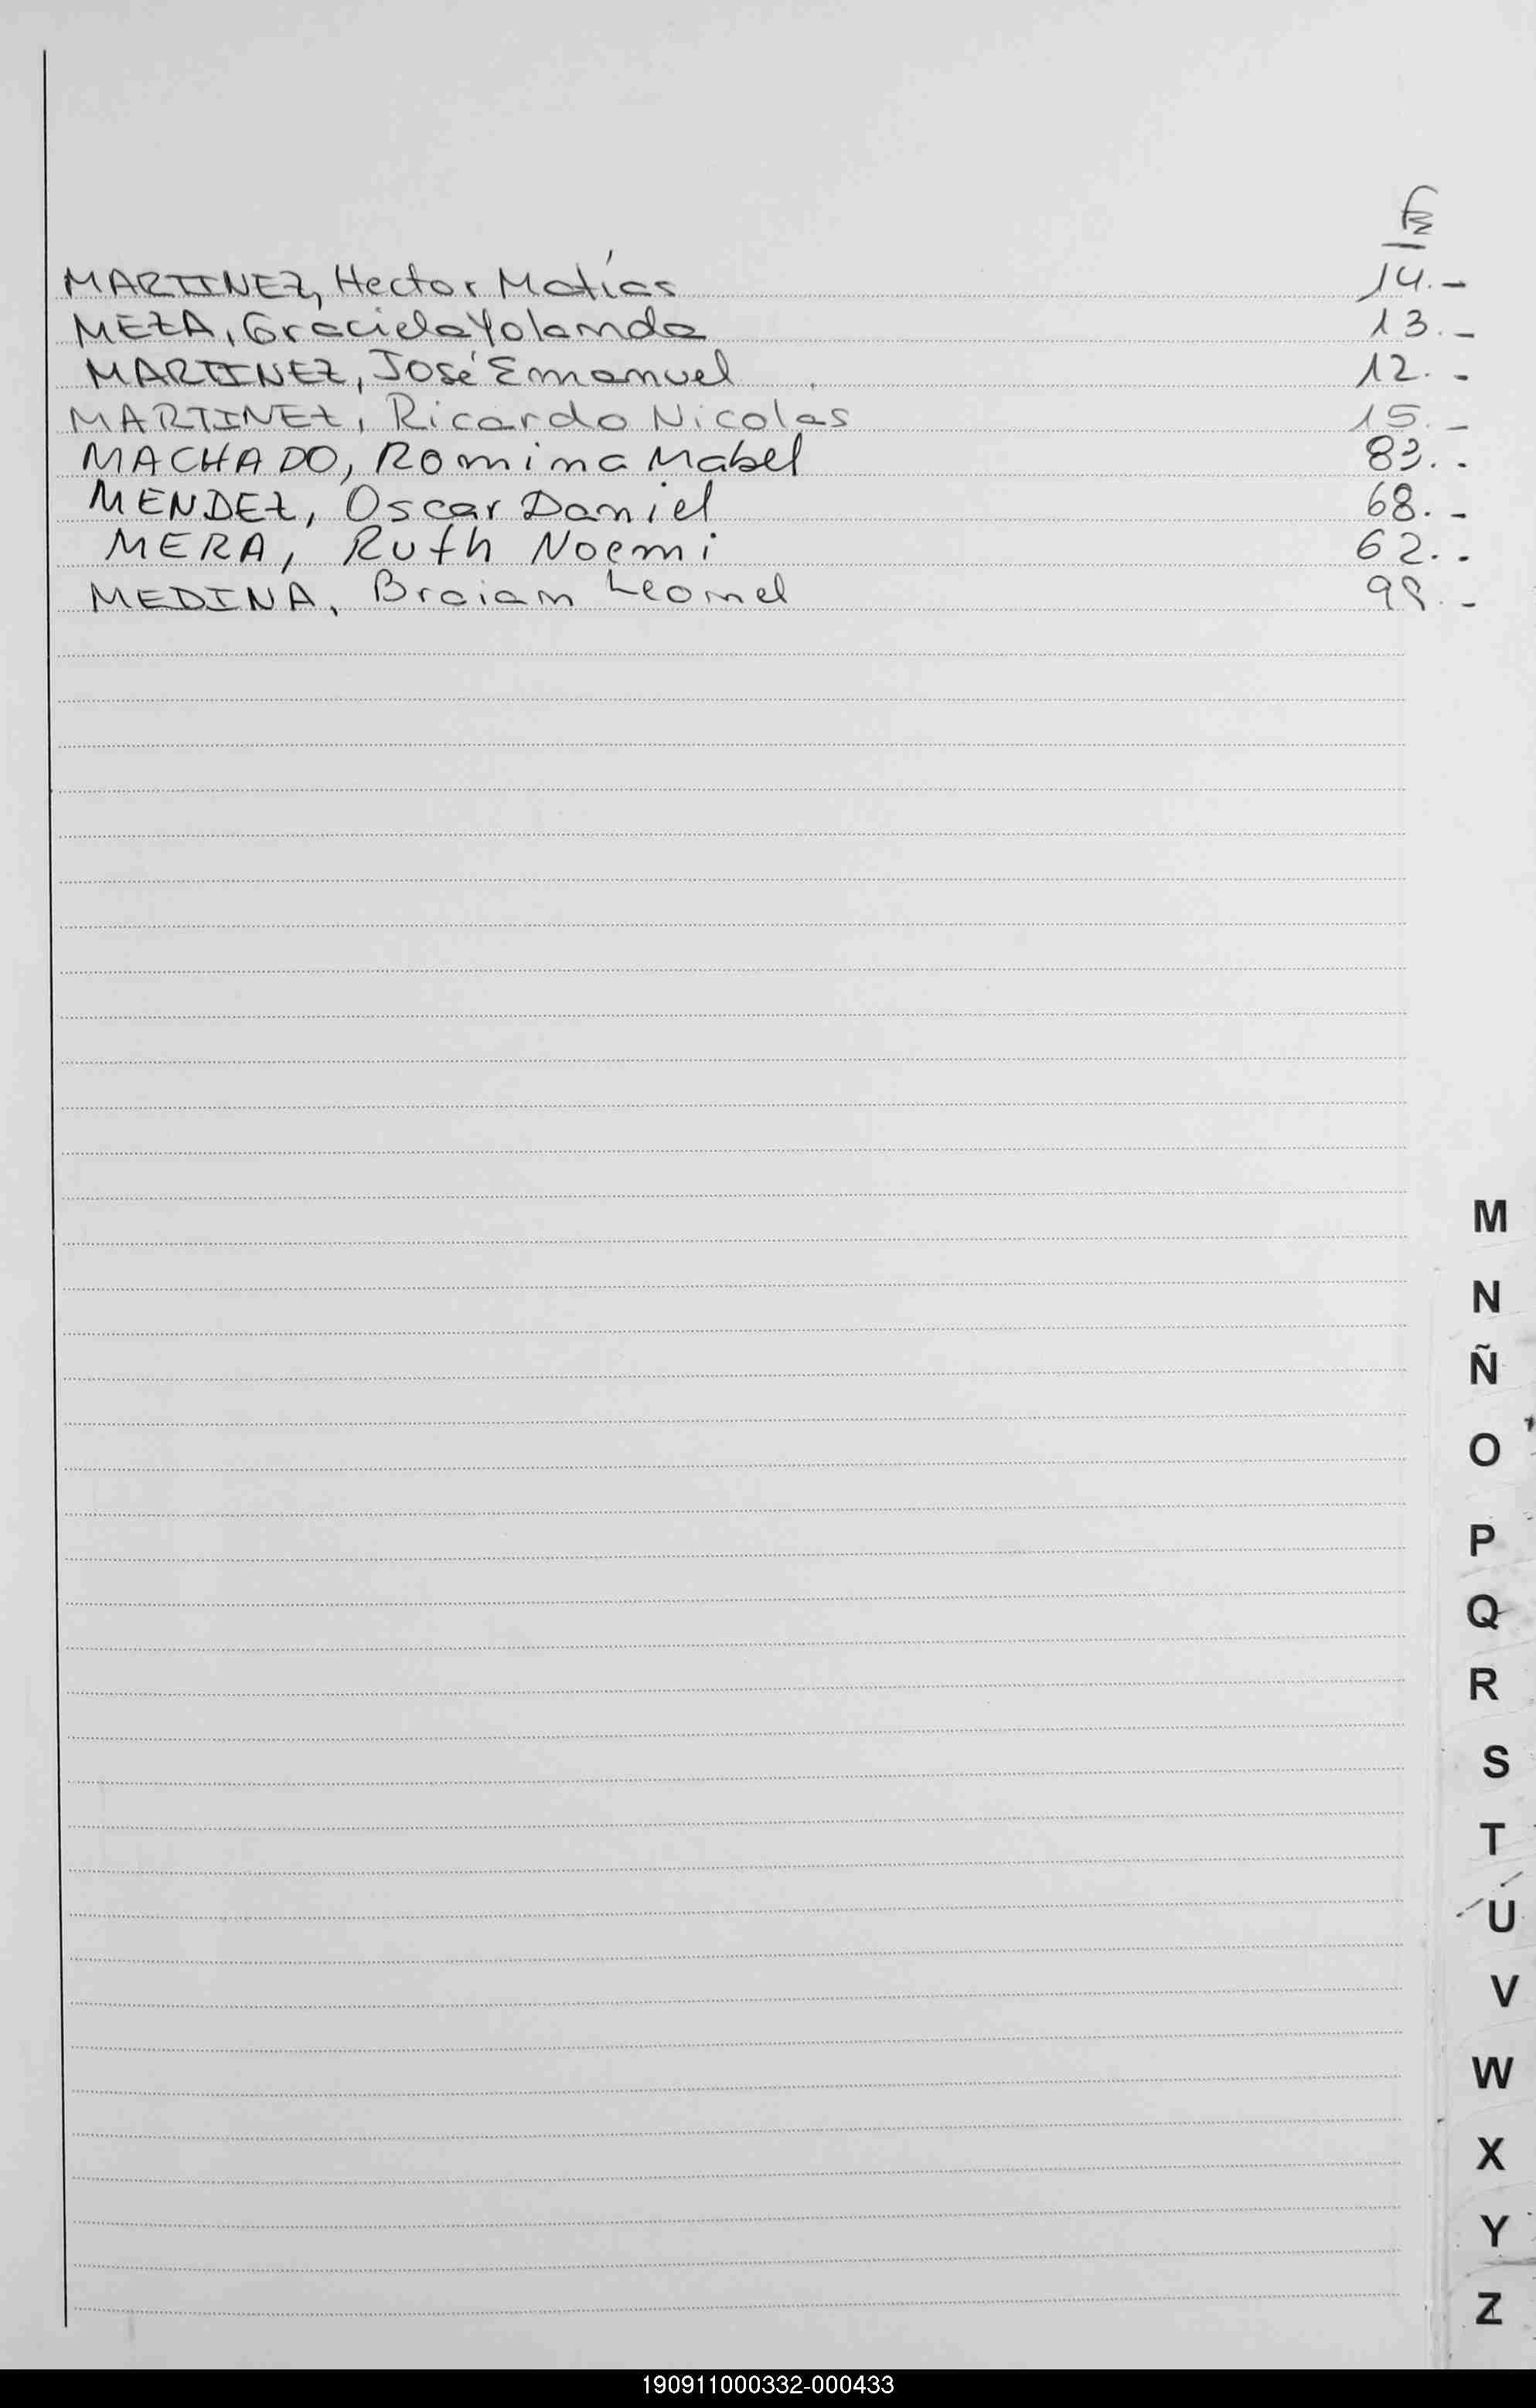 MARTINEZ, Hector Matías 14.-
MEZA, Graciela Yolanda 13.-
MARTINEZ, José Emanuel 12.-
MARTINEZ, Ricardo Nicolas 15.-
MACHADO, Romina Mabel 83.-
MENDEZ, Oscar Daniel 68.-
MERA, Ruth Noemi 62.-
MEDINA, Braian Leonel
M
N
Ñ
O
P
Q
R
S
T
U
V
W
X
Y
Z
190911000332-000433